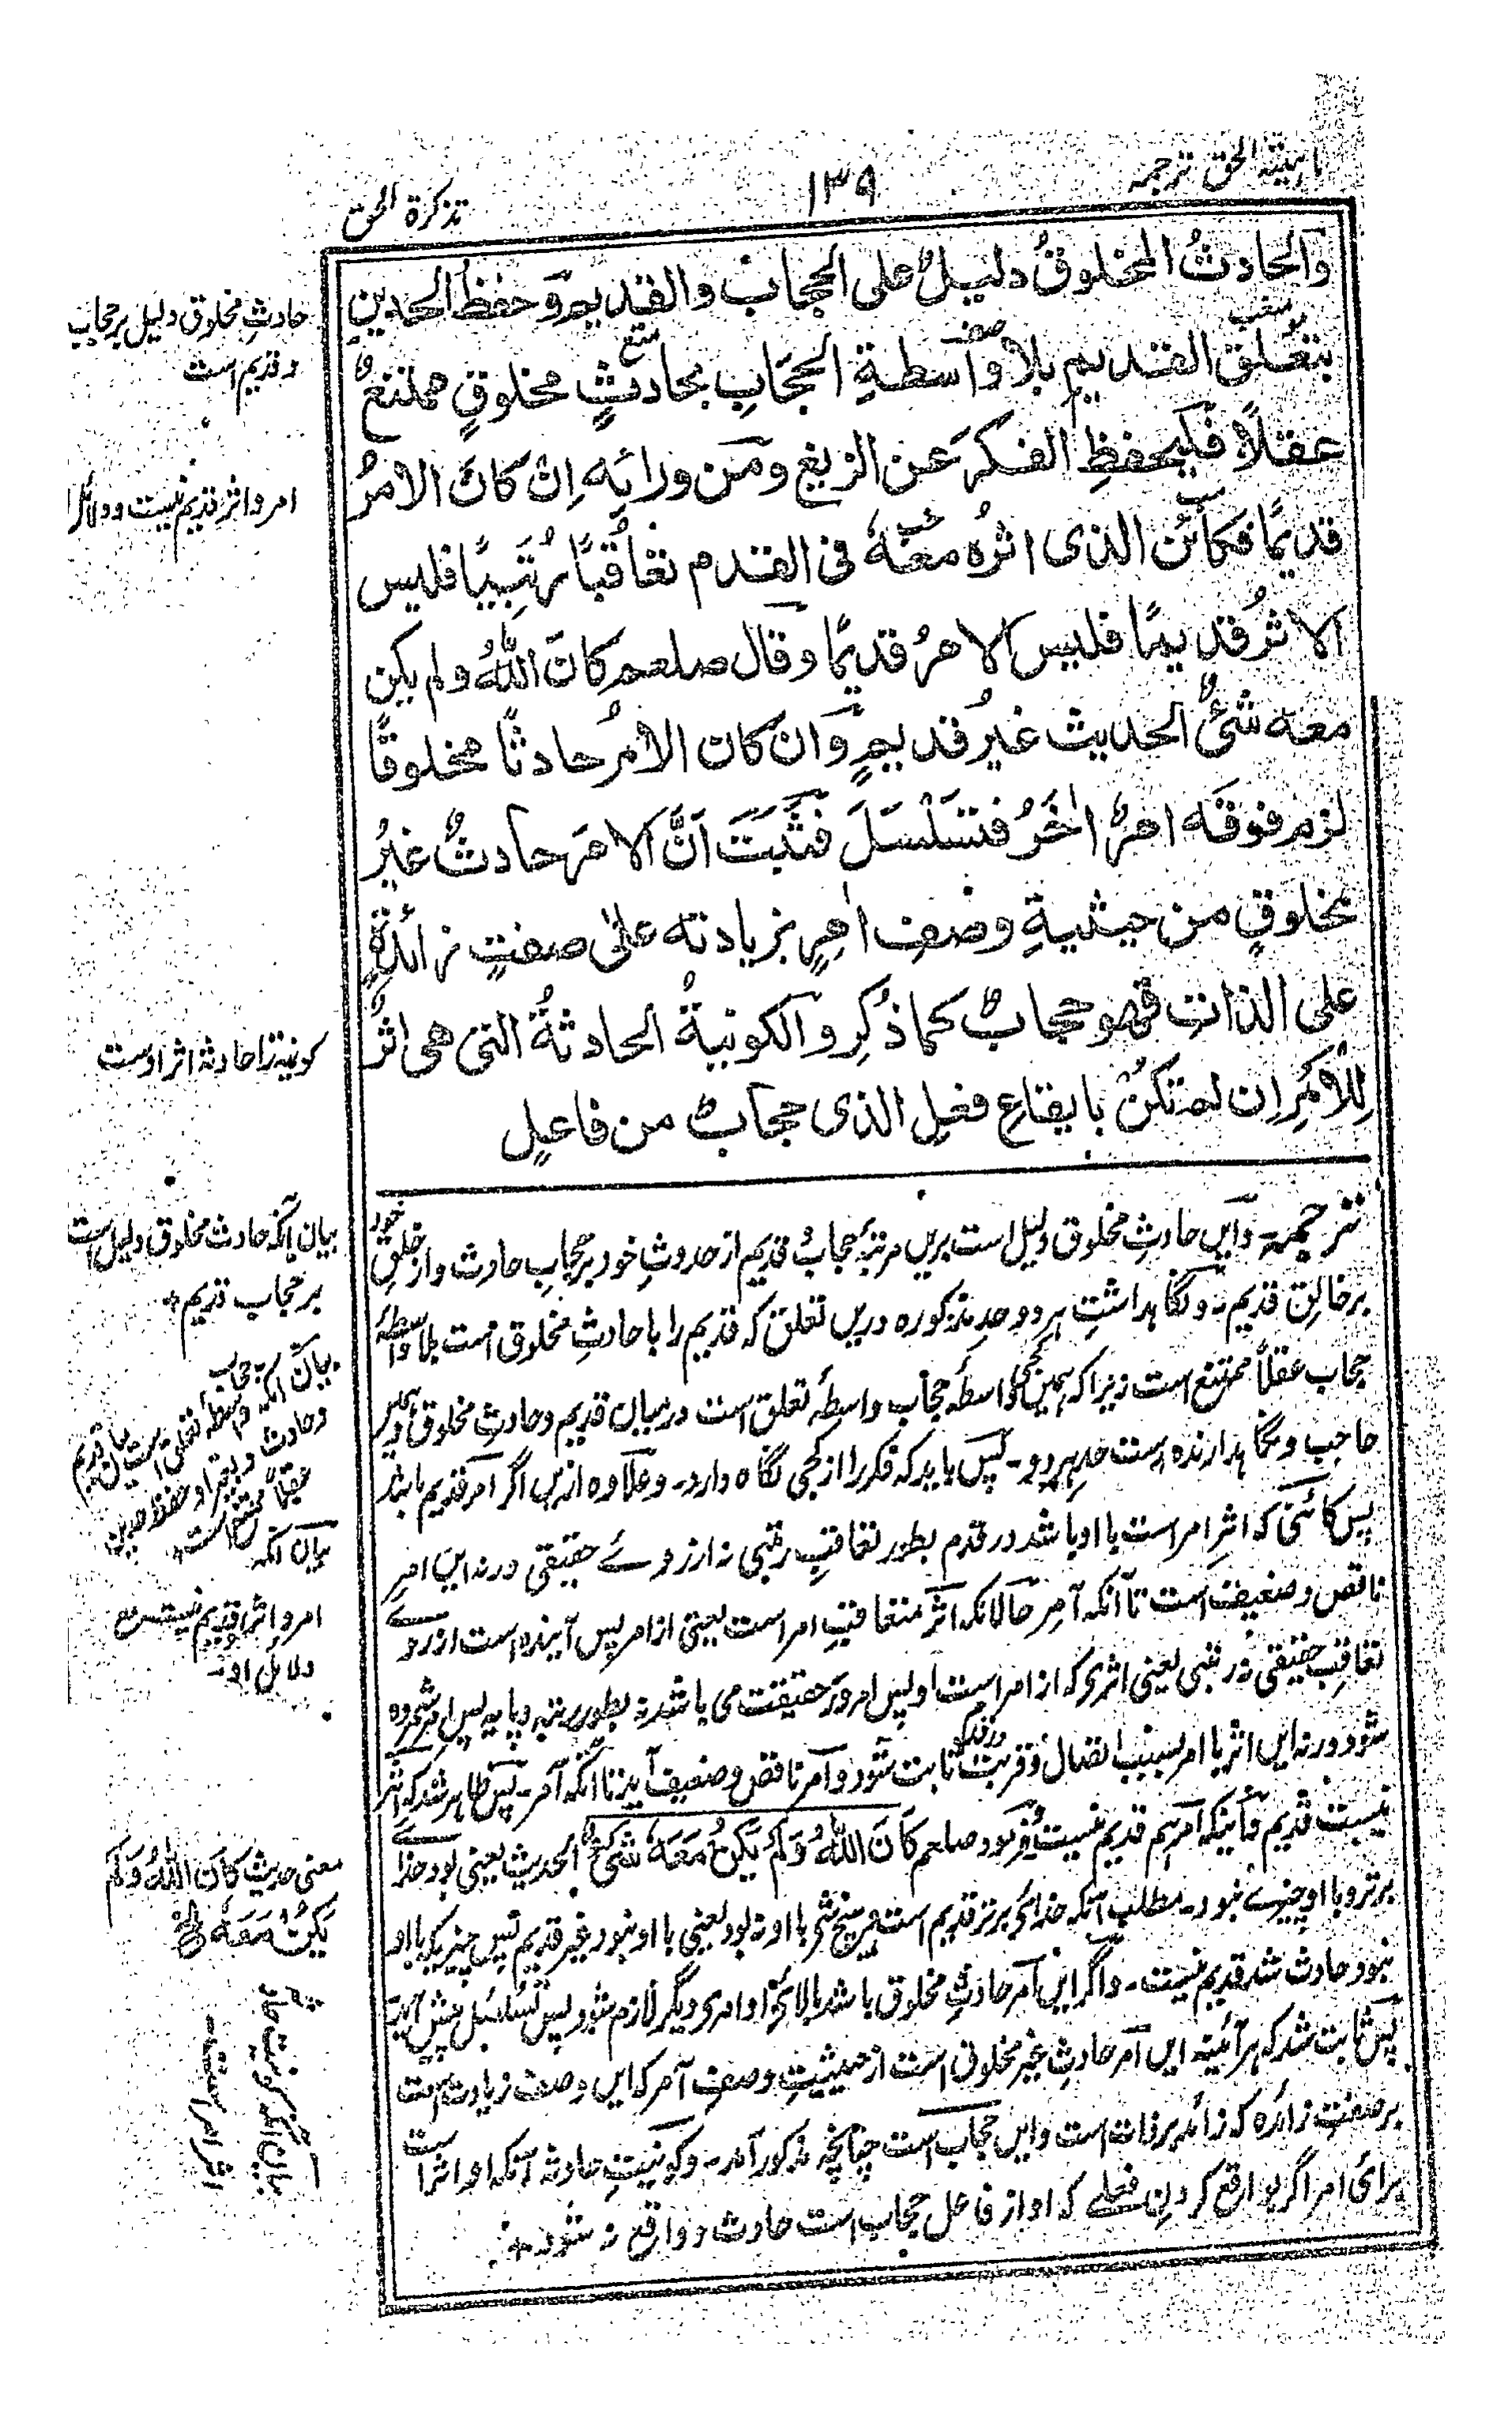 ترجمہ
۱۳۹
تذکرة الحق
وَالحادثُ المخلوقُ دلیلٌ علی الحجاب والقدیم وَحفظُ الحدین
بتعلق القدیم بلا واسطةِ الحجَابِ بحادثٍ مخلوقٍ ممتنعٌ
عقلاً فلیحفظِ الفکرَ عن الزیغ ومن ورائِه اِن کانَ الامرُ
قدیمًا فکائن الذی اثرُہ معَهٗ فی القدم تعاقُبًا رُتَبِیًا فلیس
الاثرُ قدیمًا فلیس الامرُ قدیمًا وَقال صلعم کانَ اللّٰهُ ولم یکن
معه شئٌ الحدیث غیرُ قدیمٍ وَان کان الامرُ حادثًا مخلوقًا
لزم فوقَه امرٌ اٰخَرُ فتسَلْسَلَ فثَبَتَ اَنَّ الامرَ حادثٌ غیرُ
مخلوقٍ من حیثیةِ وصفِ اٰمِرٍ بزیادته علی صفتٍ زائدةٍ
علی الذاتِ فهو حجابٌ کما ذُکِر والکونیةُ الحادثةُ التی هی اثرٌ
لِلْاَمْرِ ان لم تکنْ بایقاعِ فعلِ الذی حجابٌ من فاعلٍ
ترجمہ۔ وایں حادثِ مخلوق دلیل است بریں مرتبۂ حجابِ قدیم از حدوثِ خود بر حجابِ حادث واز خلقِ خود
بر خالقِ قدیم۔ ونگاہداشتِ ہر دو حدِ مذکورہ دریں تعلق کہ قدیم را با حادثِ مخلوق است بلا واسطۂ
حجاب عقلاً ممتنع است زیرا کہ ہمیں واسطۂ حجاب واسطۂ تعلق است درمیان قدیم وحادثِ مخلوق
حاجب ونگاہدارندہ است حدِ ہر دو۔ پس باید کہ فکر را از کجی نگاہ دارد۔ وعلاوہ ازیں اگر امر قدیم باشد
پس کائنی کہ اثرِ امر است با او باشد در قدم بطور تعاقبِ رتبی نہ از روے حقیقی ورنہ ایں امر
ناقص وضعیف است تا آنکہ آمر حالانکہ اثر متعاقبِ امر است یعنی از امر پس آیندہ است از روے
تعاقبِ حقیقی نہ رتبی یعنی اثری کہ از امر است او پس امر در حقیقت می باشد نہ بطور رتبہ وپایہ
شود ورنہ ایں اثر با امر بسبب اتصال وقربت ثابت شود وآمر ناقص وضعیف آید تا آنکہ آمر۔ پس ظاہر شد کہ اثر
نیست قدیم اینکہ امر ہم قدیم نیست وفرمود صلعم کَانَ اللّٰهُ وَلَمْ یَکُنْ مَعَهٗ شَیْءٌ الحدیث یعنی بود خداے
برتر وبا او چیزے نبود۔ مطلب آنکہ خدائی برتر قدیم است ہیچ شی با او نہ بود یعنی با او نبود غیر قدیم پس چیزیکہ با او
نبود حادث شد قدیم نیست۔ واگر ایں امر حادثِ مخلوق باشد بالائی او امری دیگر لازم شود پس تسلسل پیش آید
پس ثابت شد کہ ہر آئینہ ایں امر حادثِ غیر مخلوق است از حیثیتِ وصف آمر کہ ایں وصف زیادت است
بر صفتِ زائدہ کہ زائد بر ذات است وایں حجاب است چنانچہ مذکور آمد۔ وکونیتِ حادثہ آنکہ او اثر است
برای امر اگر بواقع کردنِ فعلے کہ او از فاعل حجاب است حادث وواقع نہ شود۔
حادثِ مخلوق دلیل بر حجاب
وقدیم است
امر واثر قدیم نیست ودلائل
کونیۃ را حادثہ اثر اوست
بیان آنکہ حادث مخلوق دلیل است
بر حجاب قدیم
بیان آنکہ حجاب
بیان آنکہ
امر واثر او قدیم نیست مع
دلائل او۔
معنی حدیث کَانَ اللّٰهُ وَلَمْ
یَکُنْ مَعَهٗ الخ
بیان آنکہ کونیت
اثر امر است۔